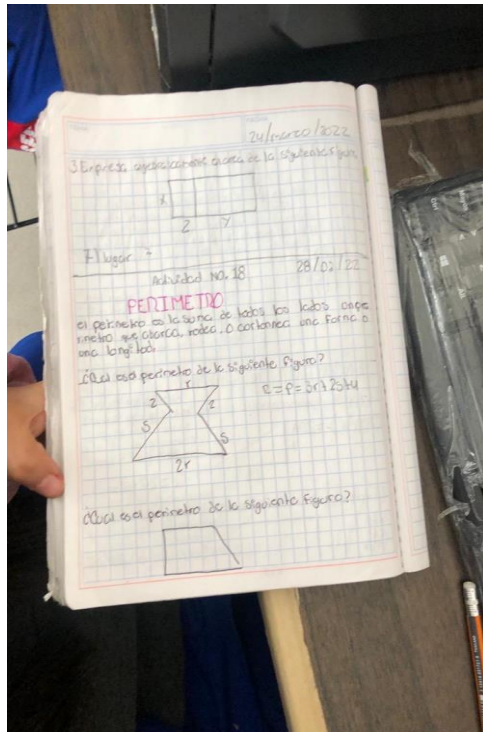 24/marzo/2022
3. Expresa algebraicamente el area de la siguiente figura
X
Z Y
Actividad No. 18
28/03/22
PERIMETRO
el perimetro es la suma de todos los lados
que abarca, rodea, o una forma o
una longitud.
¿Cual es el perimetro de la siguiente figura?
r
2 2
S S
2r
P=3r+2s+4
¿Cual es el perimetro de la siguiente figura?